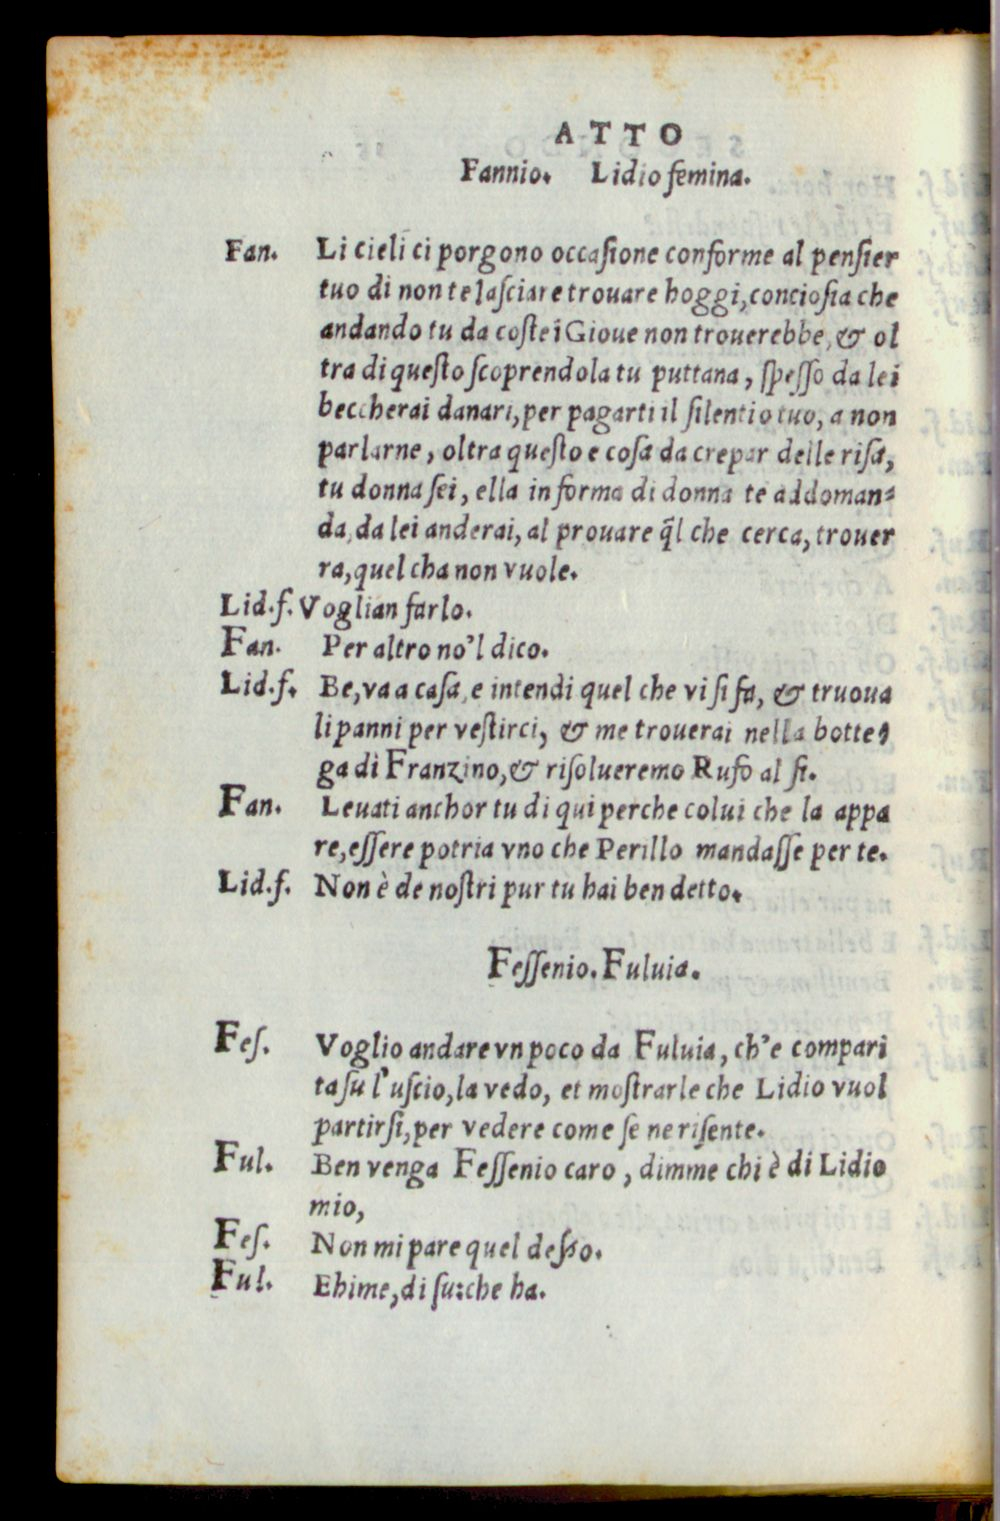 ATTO
Fannio. Lidio femina.
Fan. Li cieli ci porgono occaſione conforme al penſier
tuo di non te laſciare trouare hoggi, concioſia che
andando tu da coſtei Gioue non trouerebbe, & ol
tra di queſto ſcoprendola tu puttana, ſpeſſo da lei
beccherai danari, per pagarti il ſilentio tuo, a non
parlarne, oltra queſto e coſa da crepar delle riſa,
tu donna ſei, ella in forma di donna te addoman⸗
da, da lei anderai, al prouare q̃l che cerca, trouer
ra, quel cha non vuole.
Lid.f. Voglian farlo.
Fan. Per altro no'l dico.
Lid.f. Be, va a caſa, e intendi quel che vi ſi fa, & truoua
li panni per veſtirci, & me trouerai nella botte⸗
ga di Franzino, & riſolueremo Rufo al ſi.
Fan. Leuati anchor tu di qui perche colui che la appa
re, eſſere potria vno che Perillo mandaſſe per te.
Lid.f. Non è de noſtri pur tu hai ben detto.
Feſſenio. Fuluia.
Feſ. Voglio andare vn poco da Fuluia, ch'e compari
ta ſu l'uſcio, la vedo, et moſtrarle che Lidio vuol
partirſi, per vedere come ſe ne riſente.
Ful. Ben venga Feſſenio caro, dimme chi è di Lidio
mio,
Feſ. Non mi pare quel deſſo.
Ful. Ehime, di ſu: che ha.